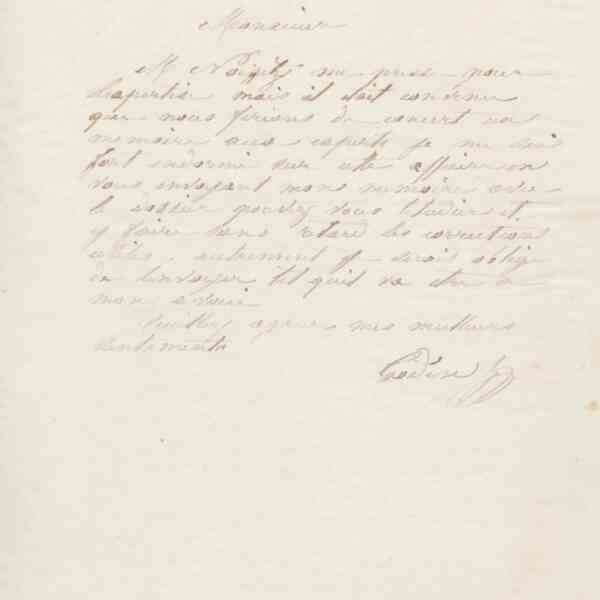 Monsieur
M. Noizet me presse pour
l'expertise mais il doit convenu
que nous ferions de concert un
mémoire aux experts je me suis
fort endormi sur cette affaire en
vous envoyant mon mémoire avec
le dossier pourrez vous l'étudier et
y faire sans retard les corrections
utiles, autrement je serais obligé
de l'envoyer tel qu'il va être à
mon avoué
Veuillez agréer mes meilleurs
sentiments
Godin